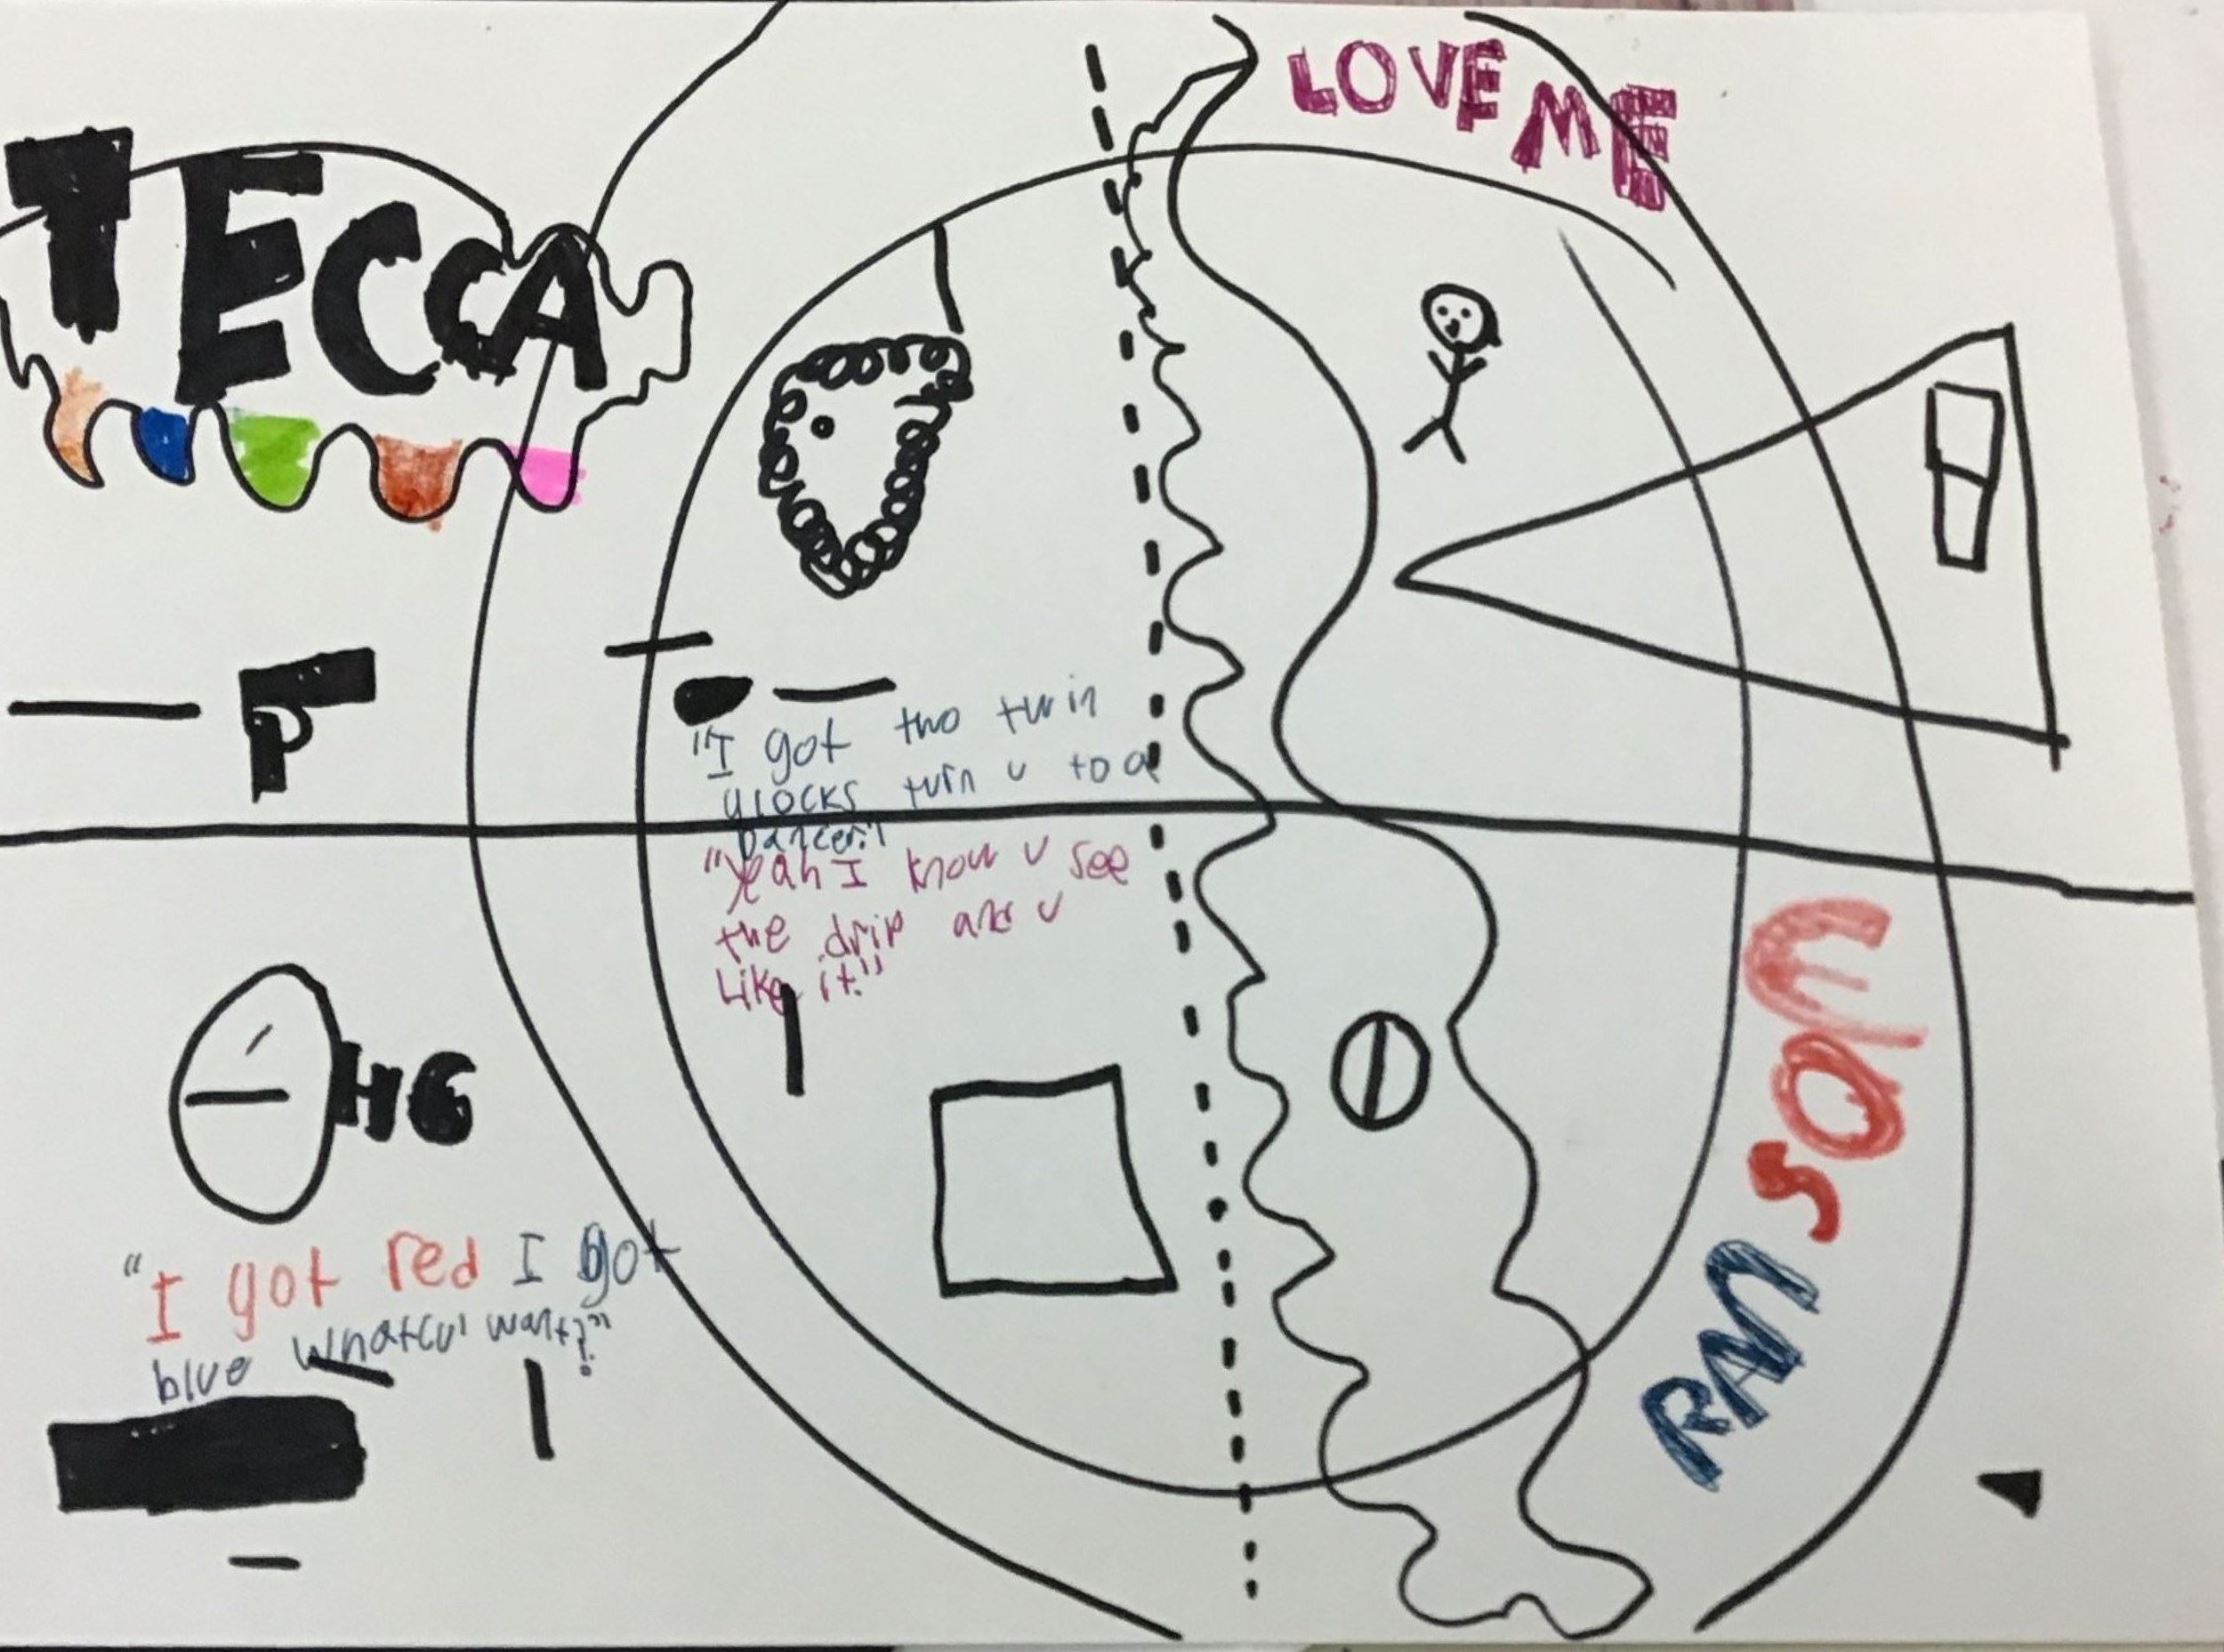 TECCA
LOVE ME
"I got two twin
glocks turn u to a
Dancer"
"Yeah I know u see
the drip and u
Like it."
HG
"I got red I got
blue whatcu' want?"
RAN